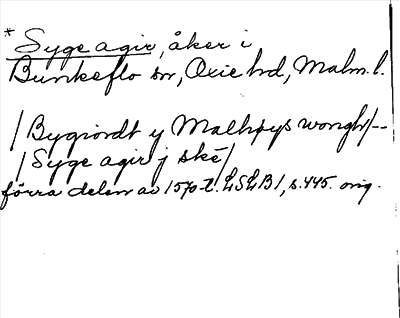 *Syge agir, åker i
Bunkeflo sn, Oxie hd, Malm. l.
/Bygiordt y Malhøys wongh/--
/Syge agir j skē/
förra delen av 1570-t. LSLB1, s. 445. orig.